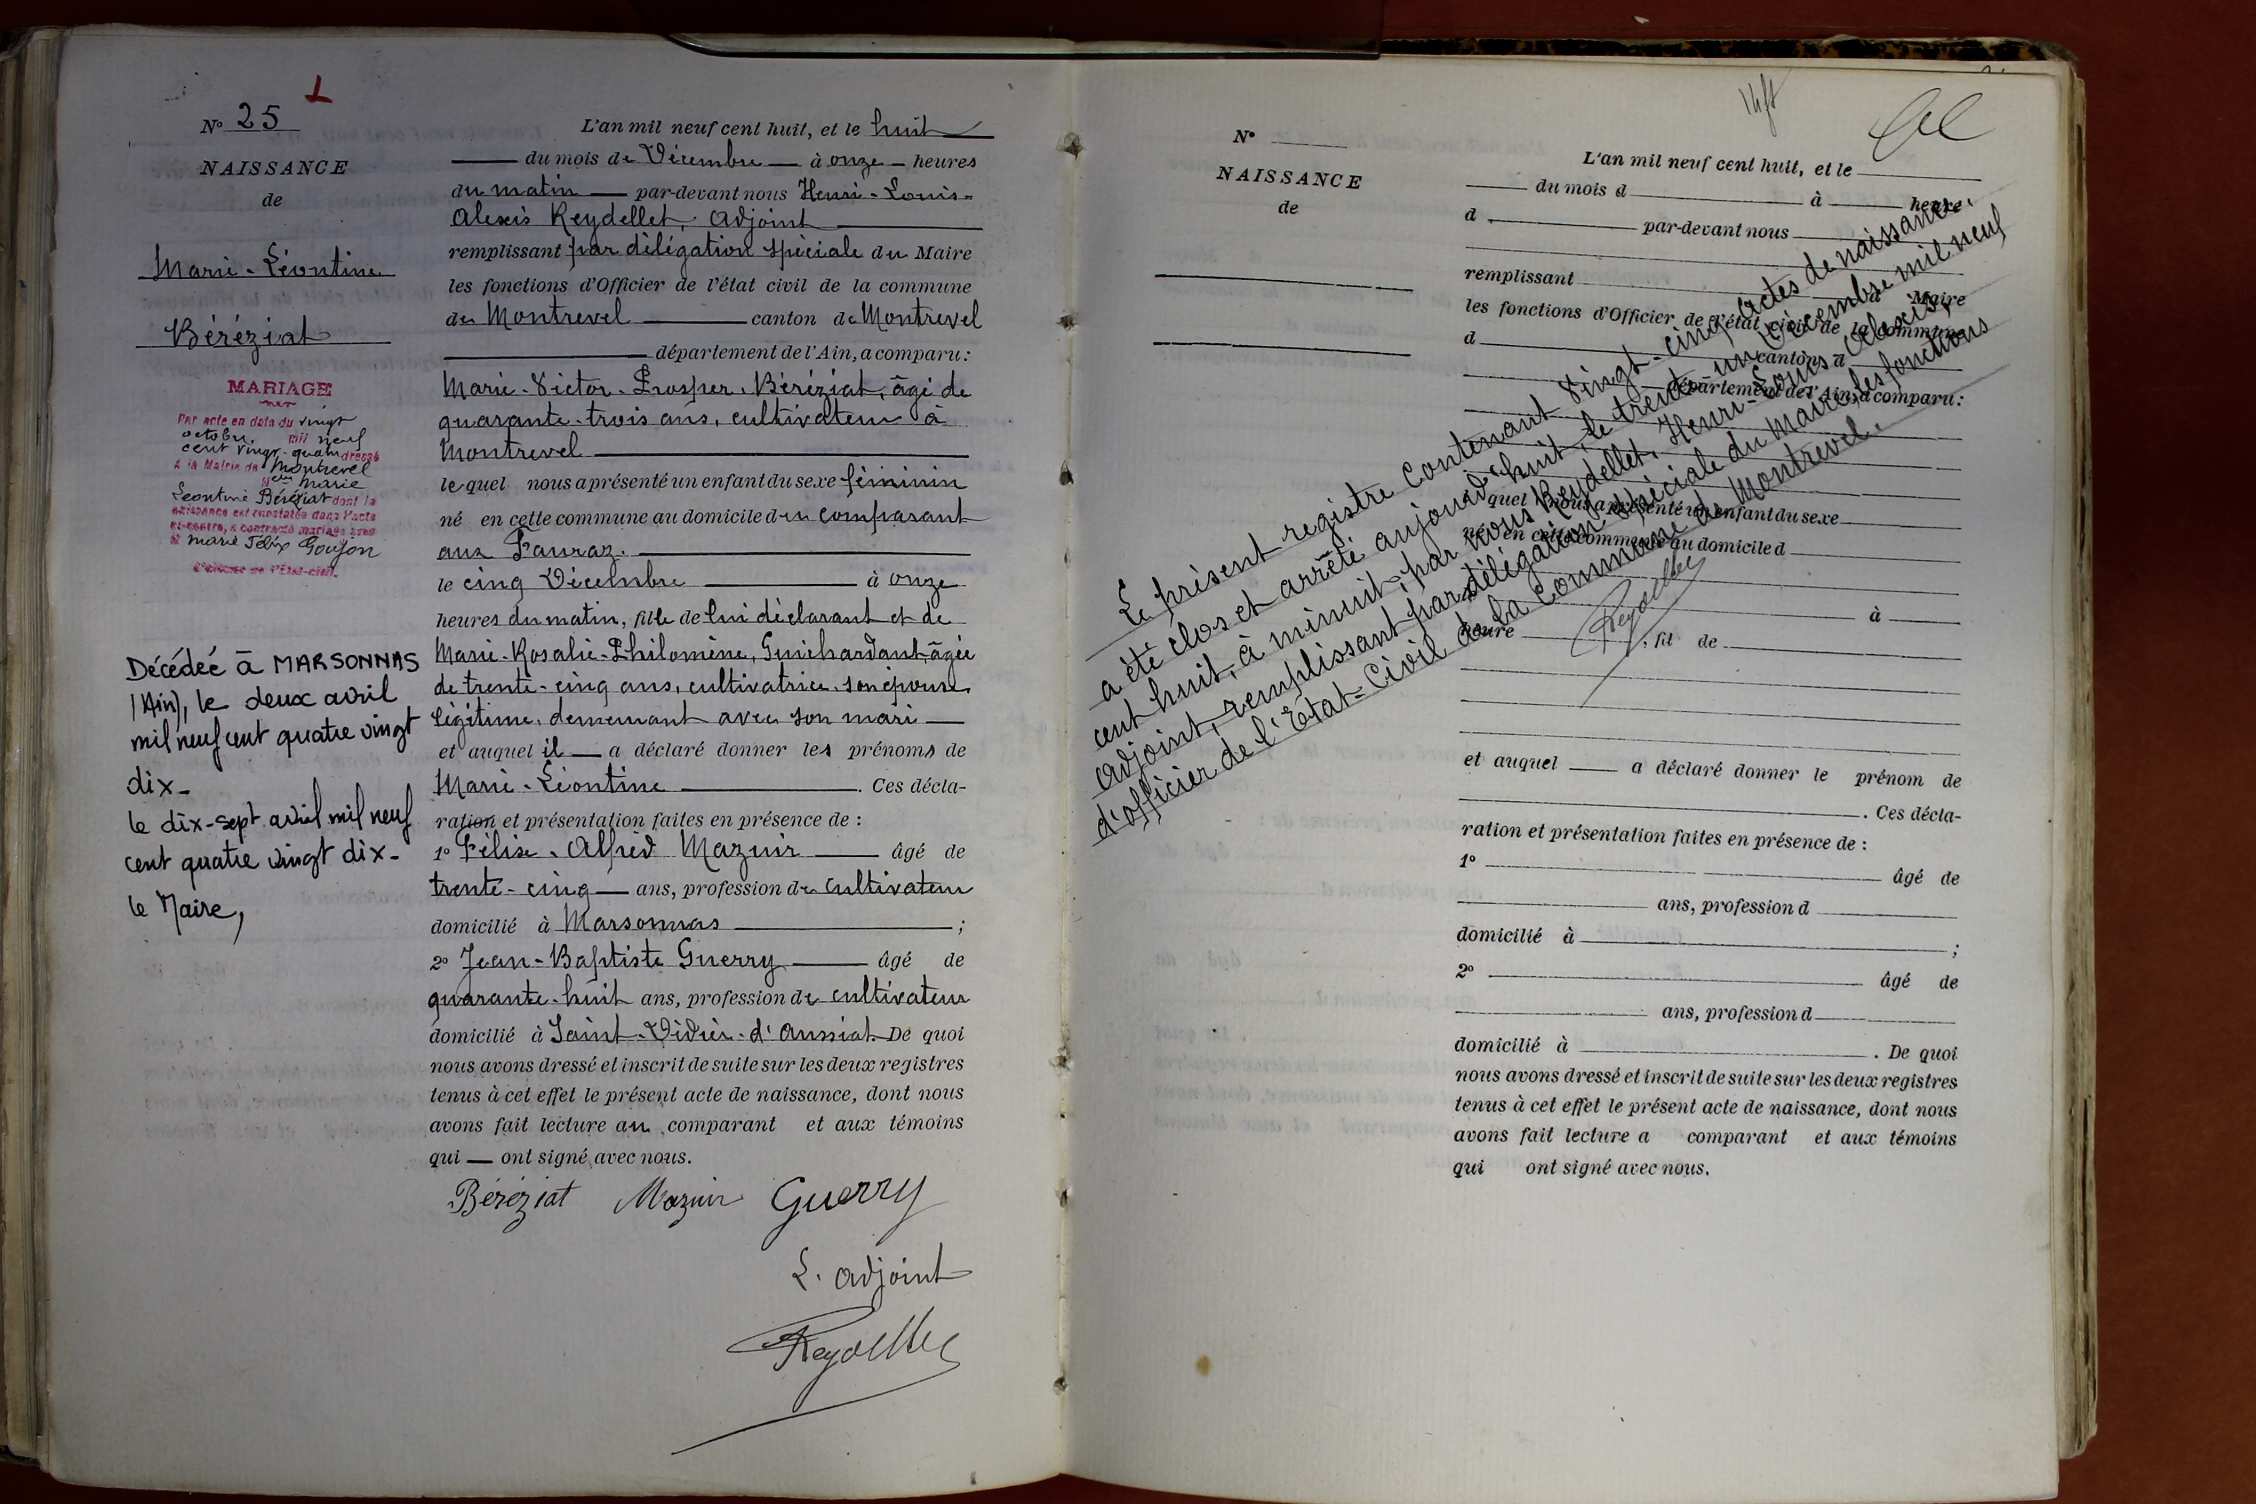 N° 25
NAISSANCE
de
Marie-Léontine
Béréziat
MARIAGE
Par acte en date du vingt
octobre mil neuf
cent vingt-quatre dressé
à la Mairie de Montrevel
Marie
Léontine Béréziat dont la
naissance est constatée dans l'acte
ci-contre, a contracté mariage avec
Marie Félix Goujon
L'Officier de l'Etat-civil.
Décédée à MARSONNAS
(Ain), le deux avril
mil neuf cent quatre vingt
dix-
le dix-sept avril mil neuf
cent quatre vingt dix-
le Maire,
L'an mil neuf cent huit, et le huit
du mois de Décembre à onze heures
du matin par-devant nous Henri-Louis-
Alexis Reydellet, adjoint
remplissant par délégation spéciale du Maire
les fonctions d'Officier de l'état civil de la commune
de Montrevel canton de Montrevel
département de l'Ain, a comparu:
Marie-Victor-Prosper Béréziat, âgé de
quarante-trois ans, cultivateur à
Montrevel
lequel nous a présenté un enfant du sexe féminin
né en cette commune au domicile du comparant
aux
le cinq Décembre à onze
heures du matin, fille de lui déclarant et de
Marie-Rosalie-Philomène, Guichardant, âgée
de trente-cinq ans, cultivatrice, son épouse
légitime, demeurant avec son mari
et auquel il a déclaré donner les prénoms de
Marie-Léontine. Ces décla-
ration et présentation faites en présence de :
1° Félix-Alfred Mazuir âgé de
trente-cinq ans, profession de cultivateur
domicilié à Marsonnas ;
2° Jean-Baptiste Guerry âgé de
quarante-huit ans, profession de cultivateur
domicilié à Saint-Didier-d'Aussiat. De quoi
nous avons dressé et inscrit de suite sur les deux registres
tenus à cet effet le présent acte de naissance, dont nous
avons fait lecture au comparant et aux témoins
qui — ont signé avec nous.
Béréziat Mazuir Guerry
L'adjoint
Reydellet
N°
NAISSANCE
de
L'an mil neuf cent huit, et le
du mois d à heure
d par-devant nous
remplissant d Maire
les fonctions d'Officier de l'état civil de la commune
d canton d
département de l'Ain, a comparu:
quel nous a présenté un enfant du sexe
né en cette commune au domicile d
à
heure , fil de
et auquel a déclaré donner le prénom de
. Ces décla-
ration et présentation faites en présence de :
1° âgé de
ans, profession d
domicilié à ;
2° âgé de
ans, profession d
domicilié à . De quoi
nous avons dressé et inscrit de suite sur les deux registres
tenus à cet effet le présent acte de naissance, dont nous
avons fait lecture a comparant et aux témoins
qui ont signé avec nous.
Le présent registre contenant vingt-cinq actes de naissance,
a été clos et arrêté aujourd'hui, le trente-un Décembre mil neuf
cent huit, à minuit, par nous Reydellet, Henri-Louis-Alexis,
adjoint, remplissant par délégation spéciale du Maire, les fonctions
d'officier de l'État-Civil de la Commune de Montrevel.
Reydellet